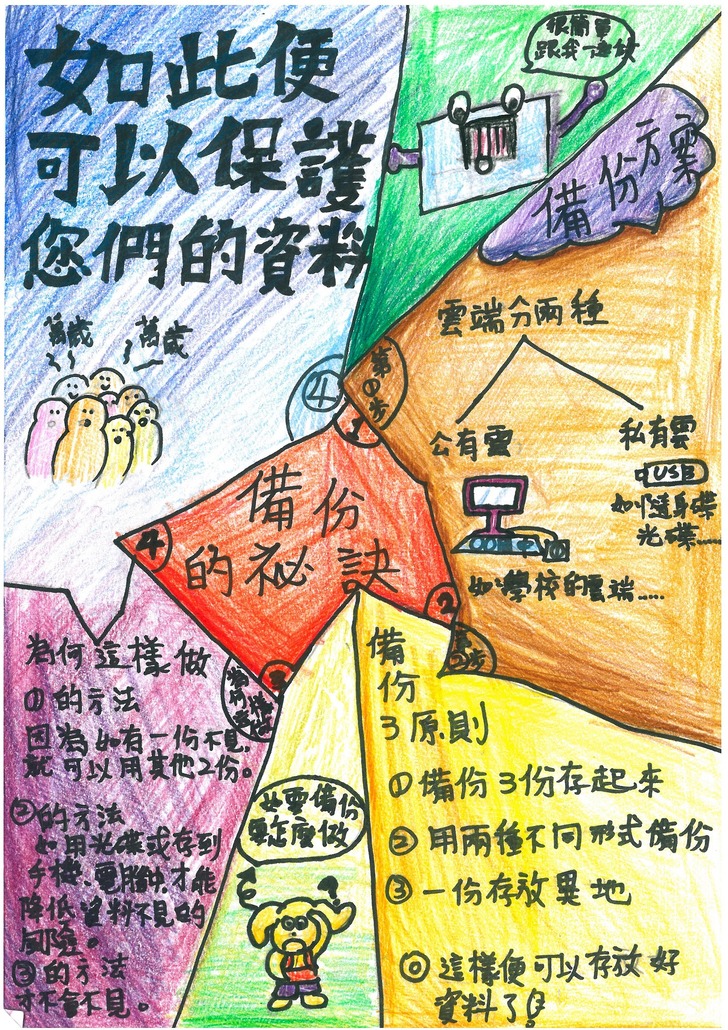 如此便
可以保護
您們的資料
萬歲
萬歲
很簡單
跟我一起做
備份方案
雲端分兩種
公有雲
如:學校的雲端.....
私有雲
USB
如:隨身碟
光碟......
④
第①步
1
備份
的祕訣
4
2
3
第②步
備
份
3原則
①備份3份存起來
②用兩種不同形式備份
③一份存放異地
◎這樣便可以存放好
資料了!
為何這樣做
①的方法
因為如有一份不見,
就可以用其他2份。
②的方法
如用光碟或存到
手機、電腦,才能
降低資料不見的
風險。
③的方法
才不會不見。
要備份
要怎麼做
?